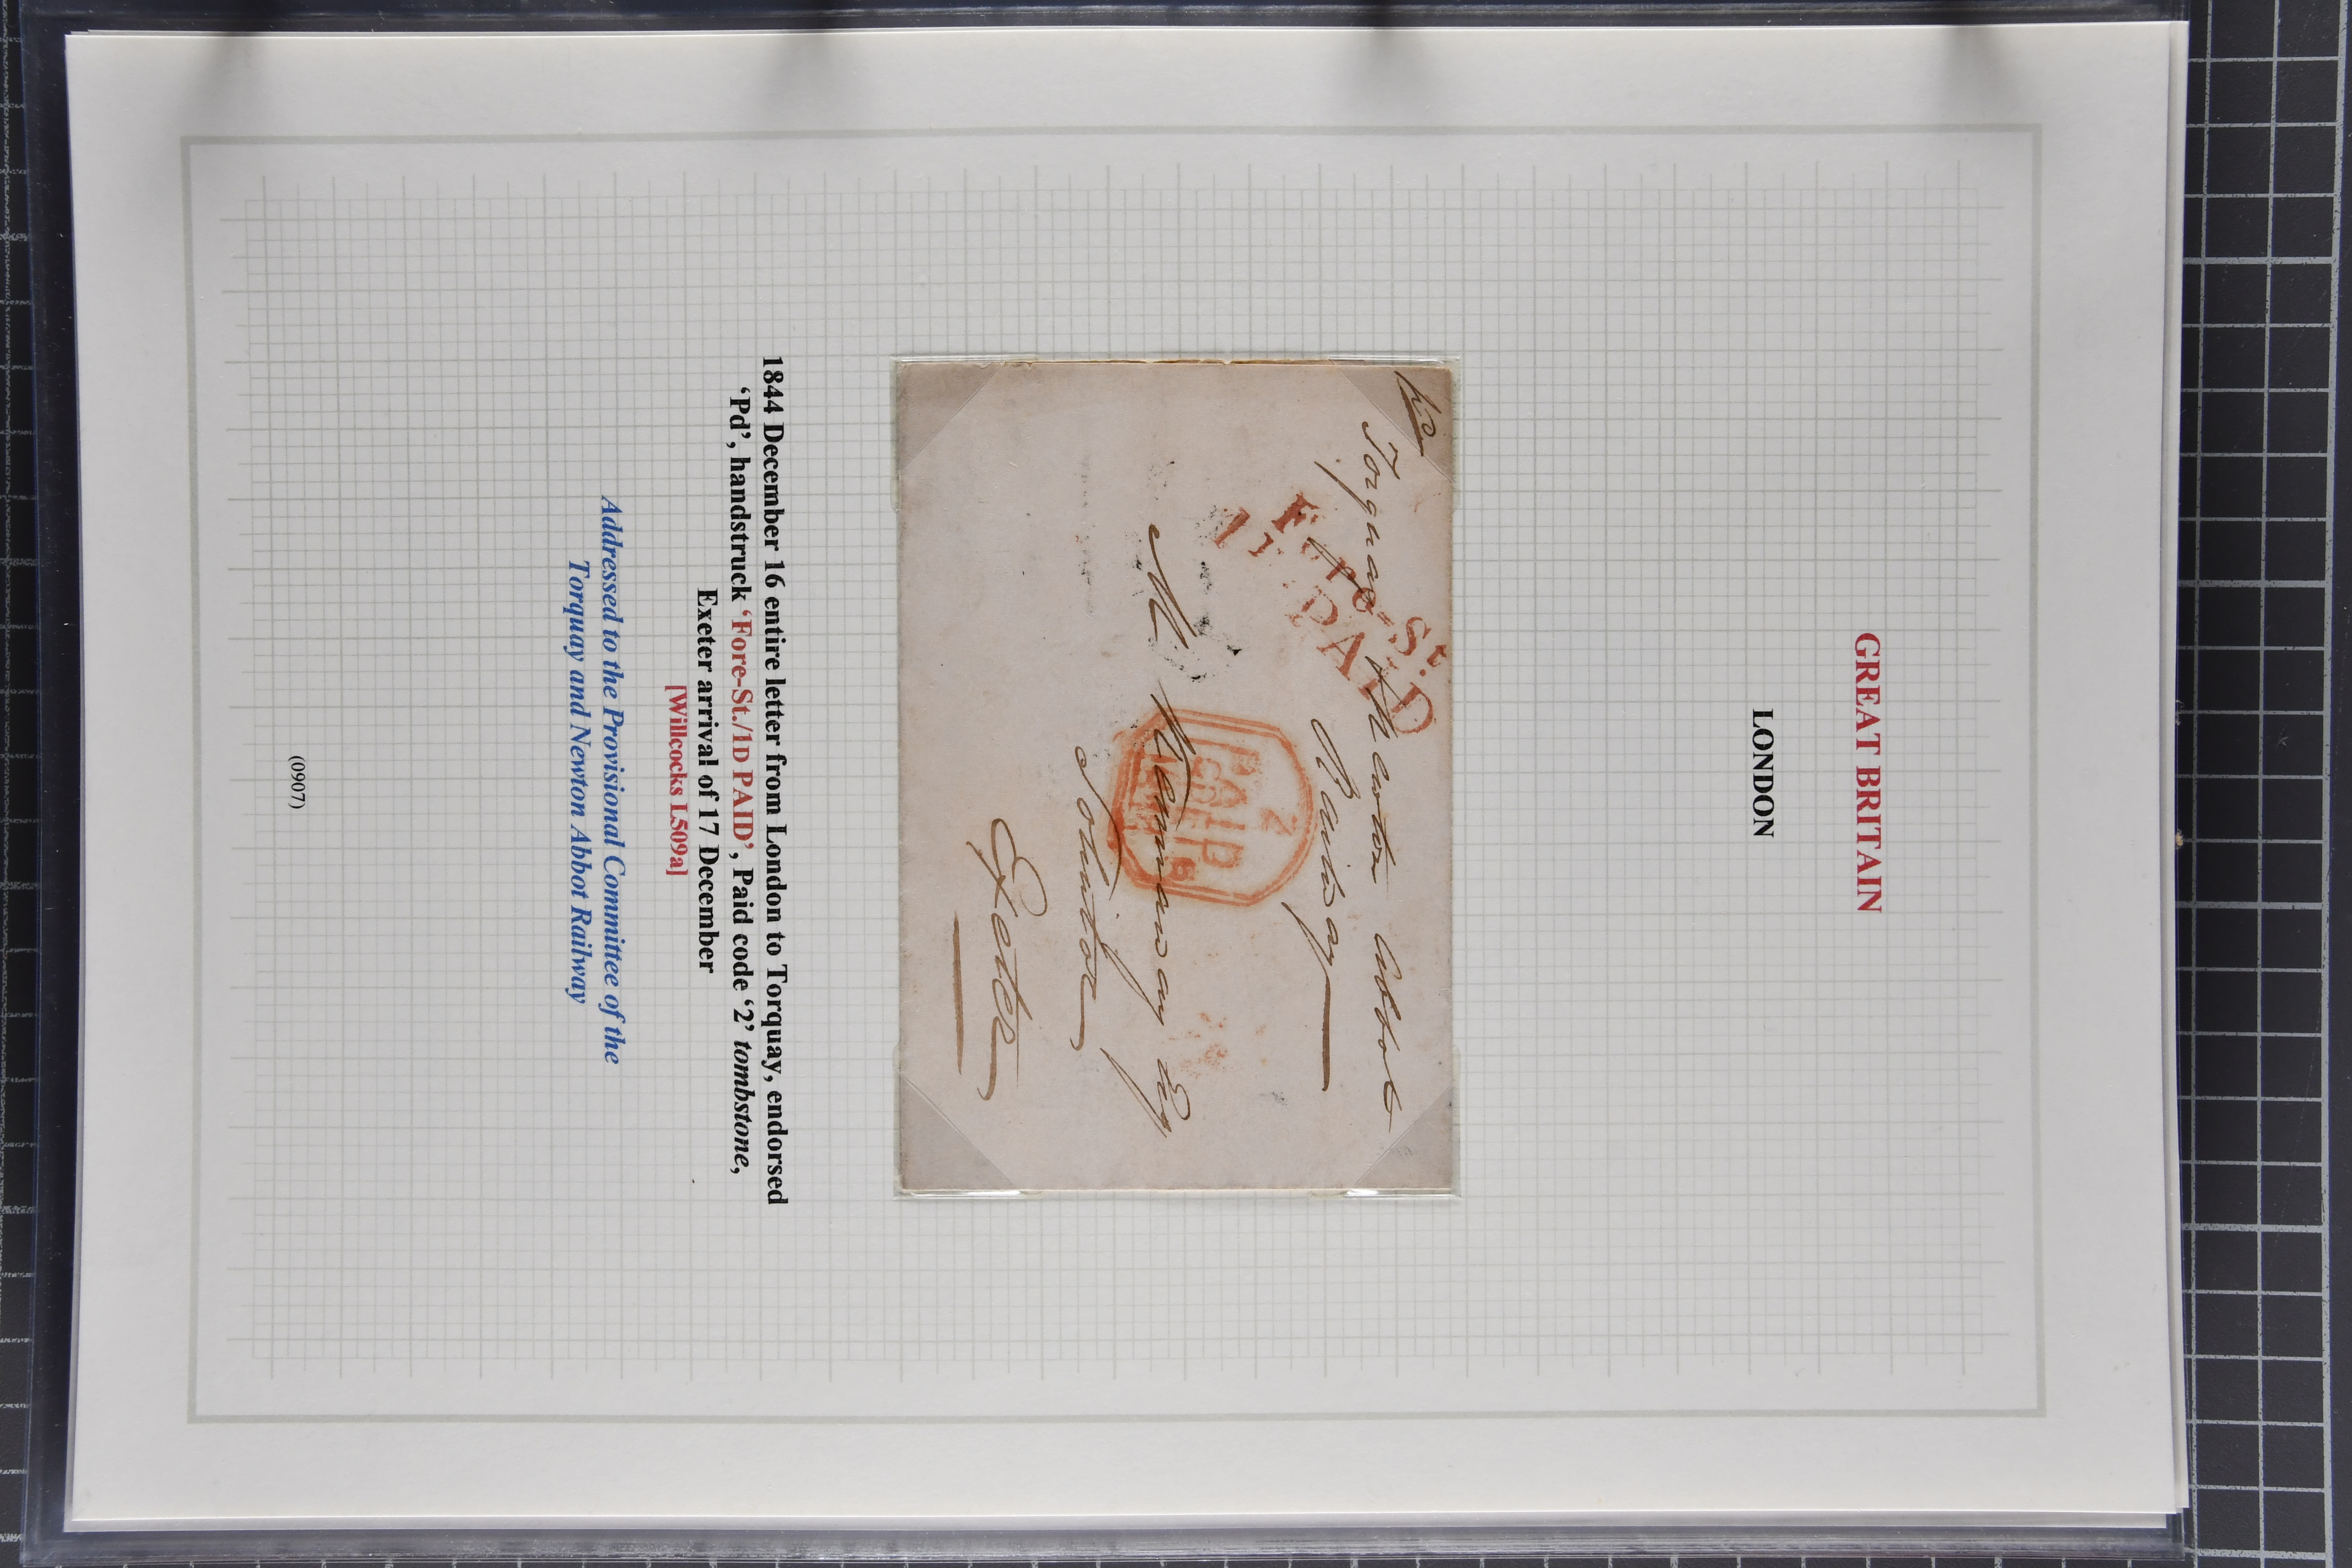 GREAT BRITAIN
LONDON
Pd
Torquay & Newton Abbot
Railway
Fore-St.
1D PAID
M. Kennaway Esq
Solicitor
Exeter
PAID
2
1844 December 16 entire letter from London to Torquay, endorsed
‘Pd’, handstruck ‘Fore-St./1D PAID’, Paid code ‘2’ tombstone,
Exeter arrival of 17 December
[Willcocks L509a]
Addressed to the Provisional Committee of the
Torquay and Newton Abbot Railway
(0907)